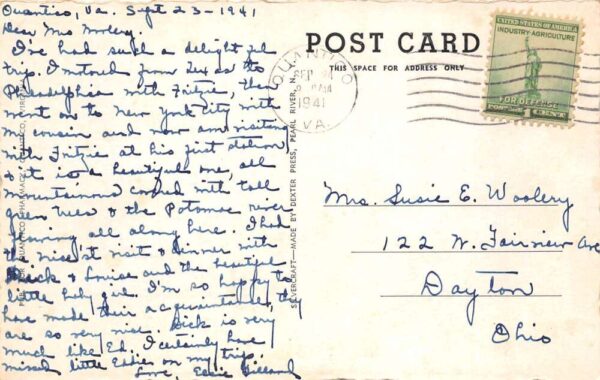 Quantico, Va. Sept 23-1941
Dear Mrs Woolery.
I've had such a delightful
trip. I motored from Texas to
Philadelphia with Fritzie, then
went on to New York City with
my cousin and now am visiting
with Fritzie at his first station
& it is a beautiful one, all
mountainous covered with tall
green trees & the Potomac river
flowing all along here. I had
the nicest visit & dinner with
Dick & Louise and the beautiful
little baby girl. I'm so happy to
have made their acquaintance, they
are so very nice. Dick is very
much like Ed. I certainly have
missed little Eddies on my trip.
Love, Essie
POST CARD
THIS SPACE FOR ADDRESS ONLY
QUANTICO
SEP
1941
VA.
UNITED STATES OF AMERICA
INDUSTRY-AGRICULTURE
FOR DEFENSE
POSTAGE 1 CENT
QUANTICO PHARMACY, QUANTICO, VIRGINIA
SILVERCRAFT—MADE BY DEXTER PRESS, PEARL RIVER, N. Y.
Mrs. Susie E. Woolery
122 W. Fairview Ave
Dayton
Ohio